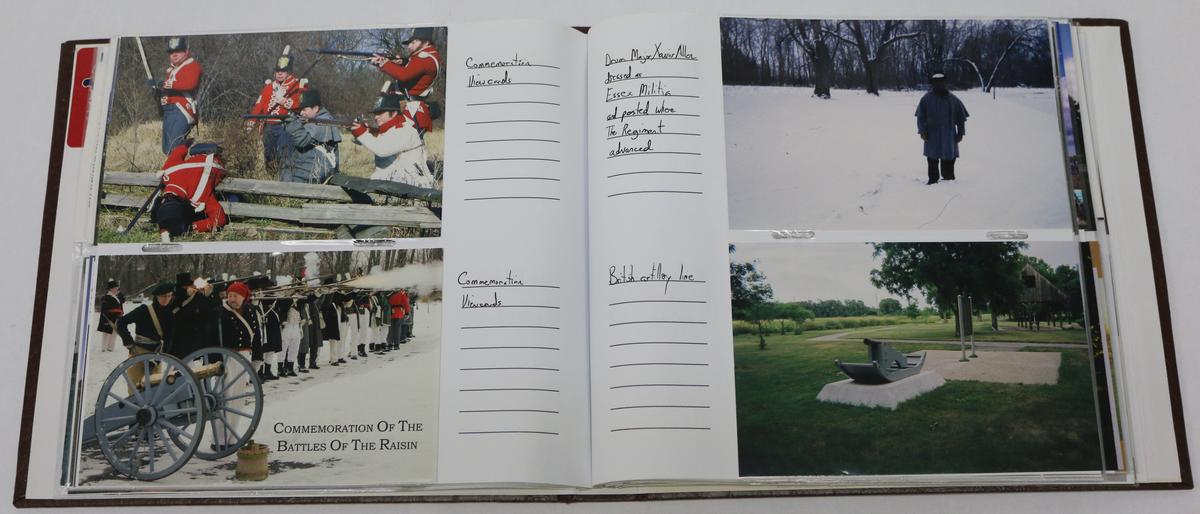 Commemoration
Viewcards
COMMEMORATION OF THE
BATTLES OF THE RAISIN
Commemoration
Viewcards
Drum Major Xavier Allen
dressed as
Essex Militia
and posted where
The Regiment
advanced
British artillery line